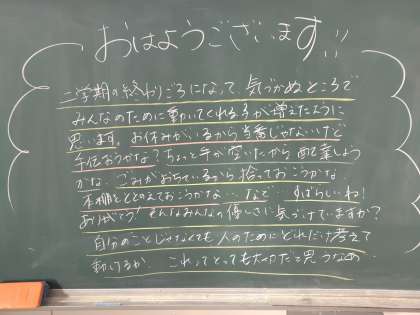 おはようございます!!
二学期の終わりごろになって、気づかぬところで
みんなのために動いてくれる子が増えたように
思います。お休みがいるから当番じゃないけど
手伝おうかな?ちょっと手が空いたから配膳しよう
かな。ごみがおちているから拾っておこうかな。
本棚をととのえておこうかな…など…すばらしいね!
そんなみんなの優しさに気づけていますか?
自分のことじゃなくても人のためにどれだけ考えて
動けるか、これってとっても大切だと思うなぁ